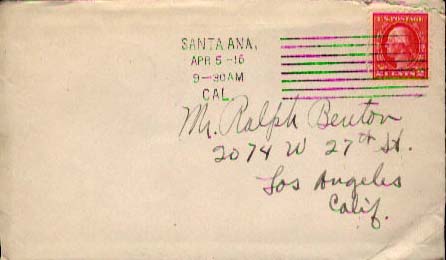 SANTA ANA,
APR 5-16
9-30AM
CAL.
U.S. POSTAGE
2 CENTS 2
Mr. Ralph Benton
2074 W 27th St.
Los Angeles
Calif.